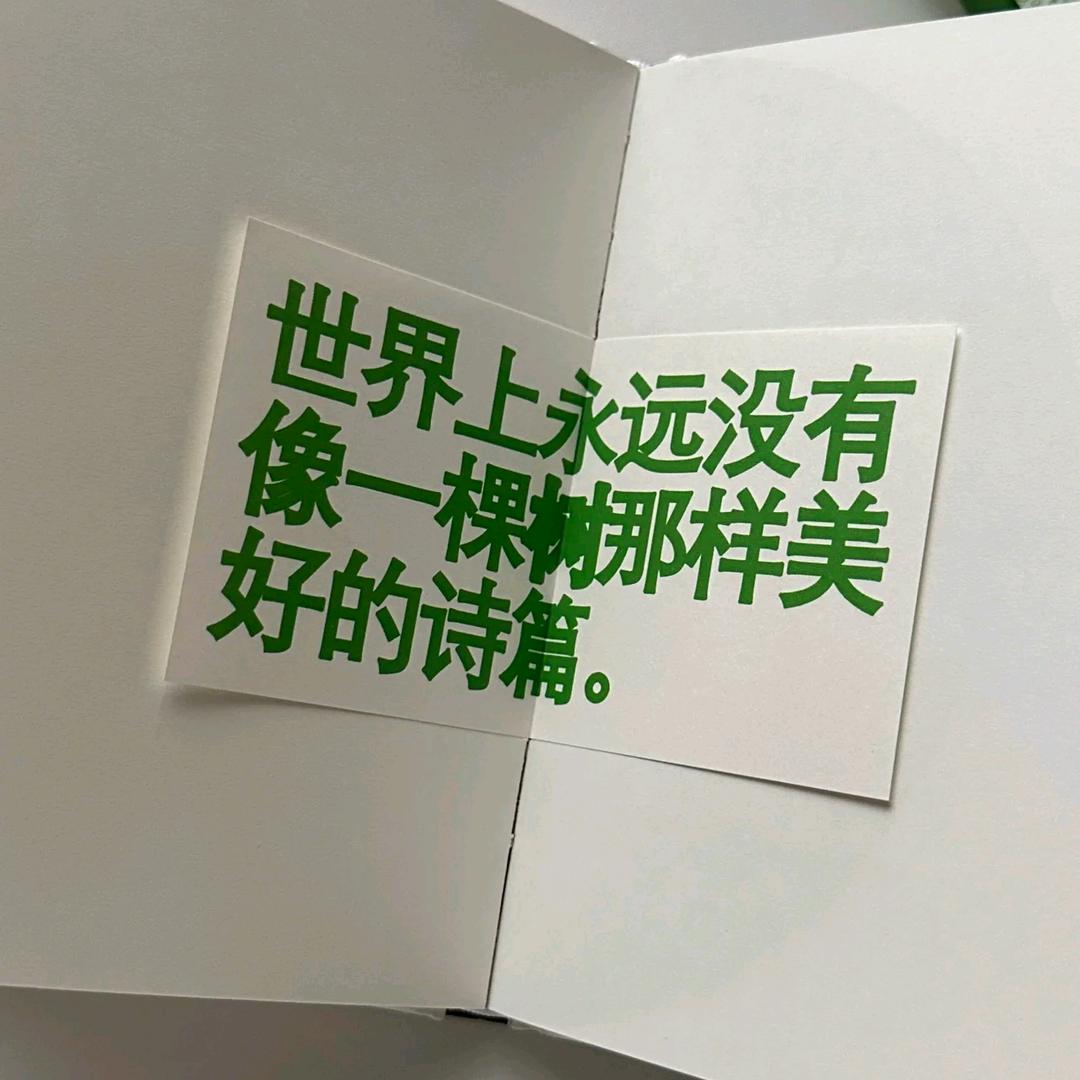 世界上永远没有
像一棵树那样美
好的诗篇。